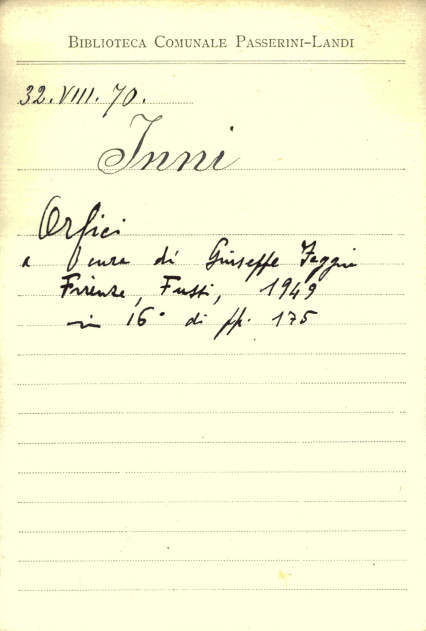 BIBLIOTECA COMUNALE PASSERINI-LANDI
32.VIII.70.
Inni
Orfici
a cura di Giuseppe Faggin
Firenze, Fussi, 1949
in 16° di pp. 175